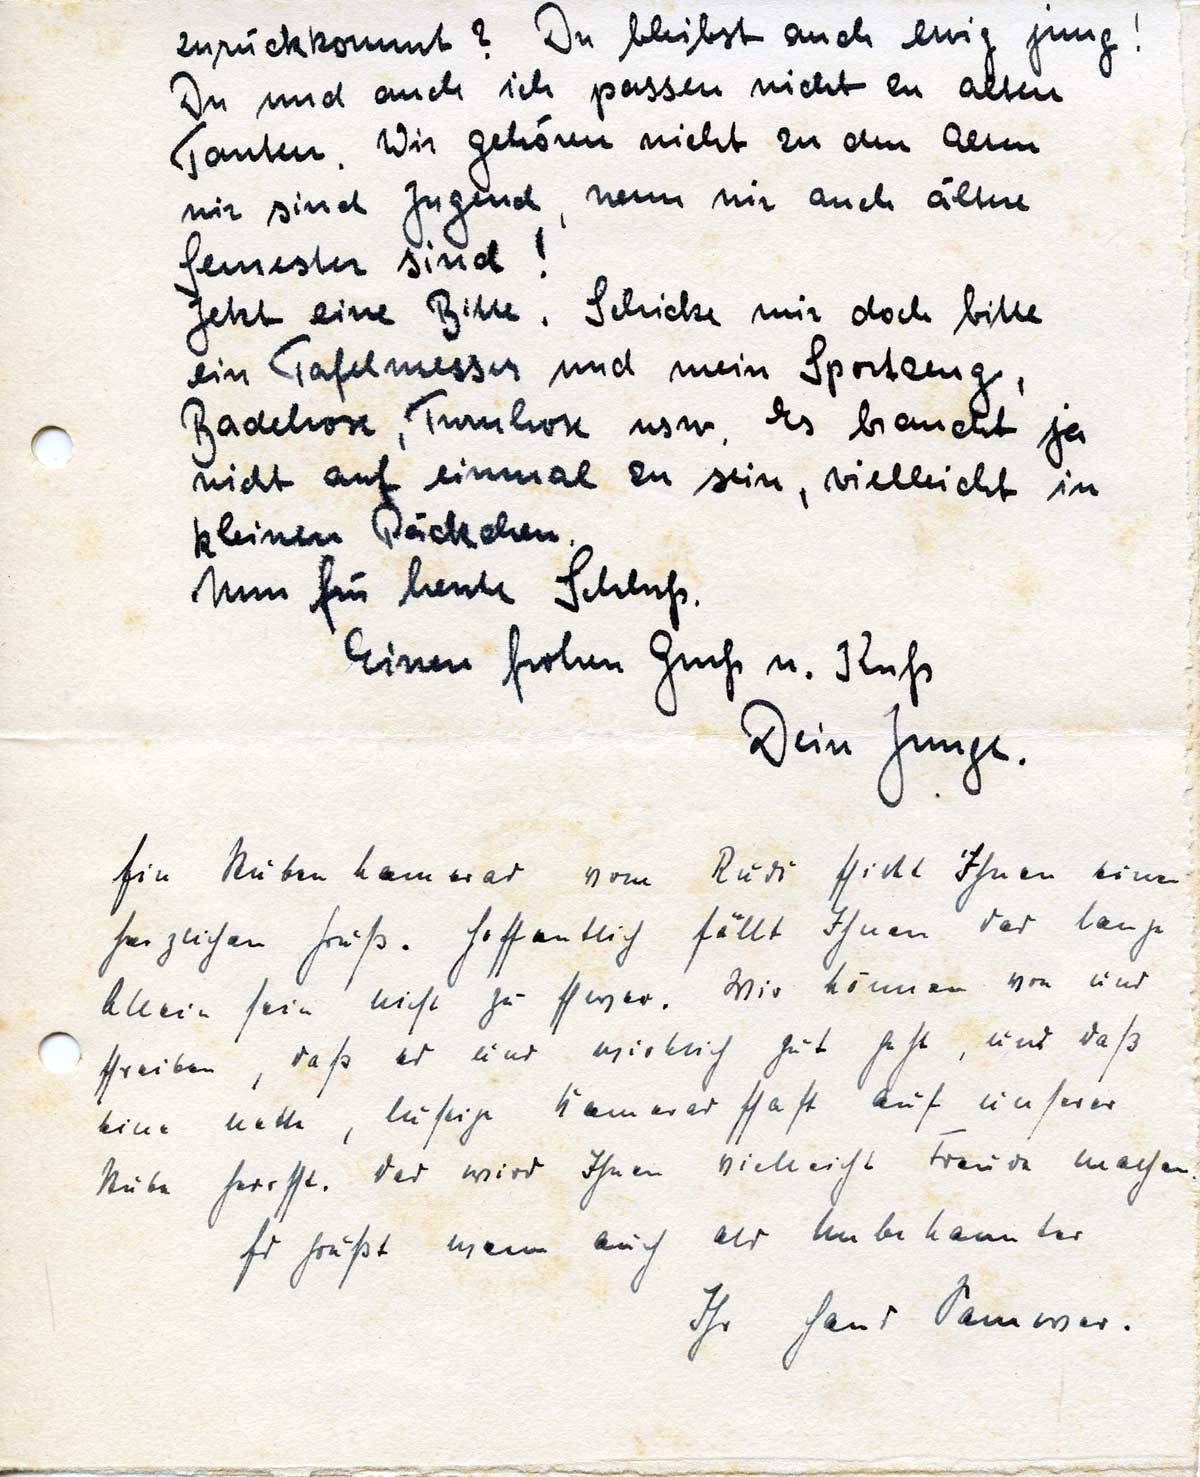 zurückkommt? Du bleibst auch ewig jung!
Du und auch ich passen nicht zu alten
Tanten. Wir gehören nicht zu den Alten
wir sind Jugend, wenn wir auch ältere
Semester sind!
Jetzt eine Bitte. Schicke mir doch bitte
ein Tafelmesser und mein Sportzeug,
Badehose, Turnhose usw. Es braucht ja
nicht auf einmal zu sein, vielleicht in
kleinen Päckchen.
Nun für heute Schluß.
Einen frohen Gruß u. Kuß
Dein Junge.
Ein Stubenkamerad vom Rudi schickt Ihnen einen
herzlichen Gruß. Hoffentlich fällt Ihnen das lange
Alleinsein nicht zu schwer. Wir können von uns
schreiben, daß es uns wirklich gut geht, und daß
eine nette, lustige Kameradschaft auf unserer
Stube herrscht. Das wird Ihnen vielleicht Freude machen.
Es grüßt wenn auch als Unbekannter
Ihr Hans